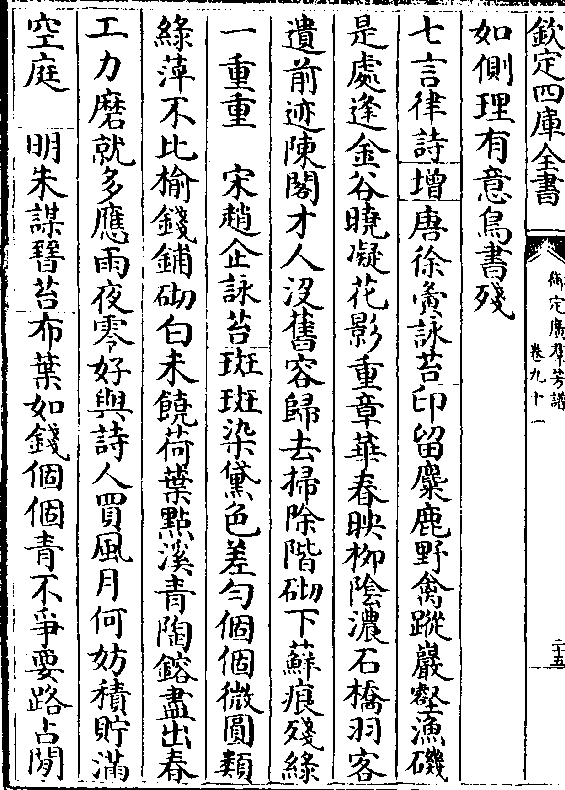 欽定四庫全書
御定廣羣芳譜
卷九十一
二十五
如側理有意鳥書殘
七言律詩增唐徐夤詠苔印留麋鹿野禽蹤巖壑漁磯
是處逢金谷曉凝花影重章華春映柳陰濃石橋羽客
遺前迹陳閣才人沒舊容歸去掃除階砌下蘚痕殘綠
一重重　宋趙企詠苔斑斑染黛色差勻個個微圓類
綠萍不比榆錢鋪砌白未饒荷葉點溪青陶鎔盡出春
工力磨就多應雨夜零好與詩人買風月何妨積貯滿
空庭　明朱謀㙔苔布葉如錢個個青不爭要路占閒